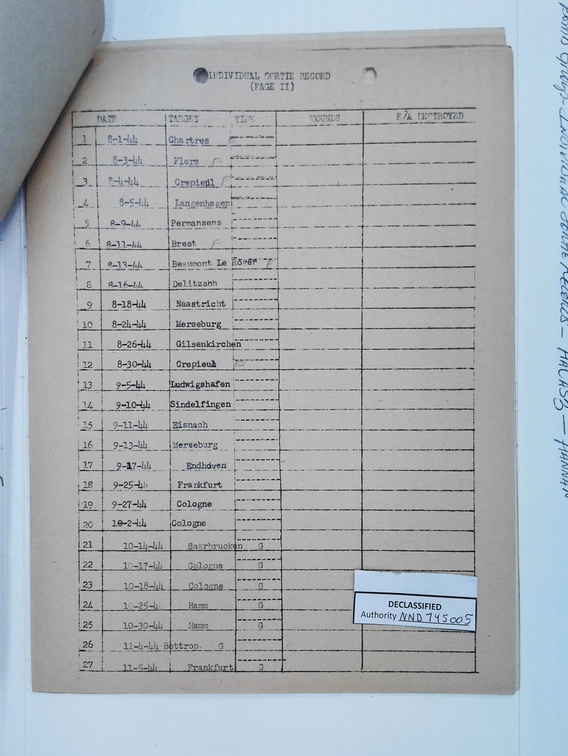 INDIVIDUAL SORTIE RECORD
(PAGE II)
DATE TARGET WOUNDS E/A DESTROYED
1 8-1-44 Chartres F
2 8-3-44 Flers F
3 8-4-44 Crepieul F
4 8-5-44 Langenhagen
5 8-9-44 Permansens
6 8-11-44 Brest F
7 8-13-44 Beaumont Le F
8 8-16-44 Delitzshh
9 8-18-44 Naastricht
10 8-24-44 Merseburg
11 8-26-44 Gilsenkirchen
12 8-30-44 Crepieul F
13 9-5-44 Ludwigshafen
14 9-10-44 Sindelfingen
15 9-11-44 Eisnach
16 9-13-44 Merseburg
17 9-17-44 Endhoven
18 9-25-44 Frankfurt
19 9-27-44 Cologne
20 10-2-44 Cologne
21 10-14-44 Saarbrucken G
22 10-17-44 Cologne G
23 10-18-44 Cologne G
24 10-25-4 Hamm G
25 10-30-44 Hamm G
26 11-4-44 Bottrop G
27 11-5-44 Frankfurt G
DECLASSIFIED
Authority NND 745005
Individual Sortie Records - HALASZ - HANNAN